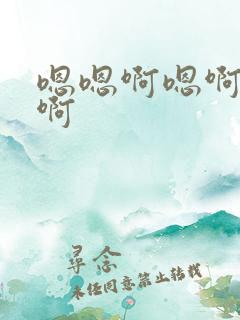 嗯嗯啊嗯啊
啊
寻念
未经同意禁止转载